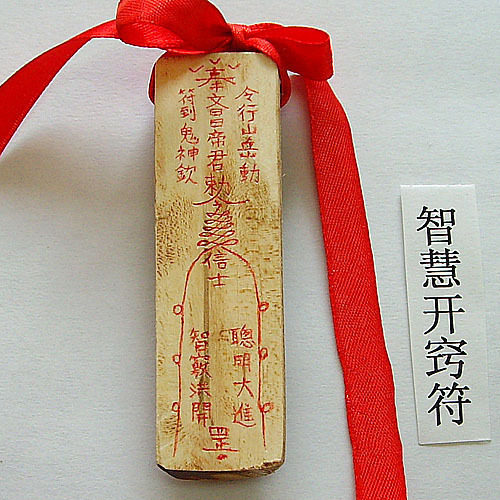 奉文昌帝君勅令
信士
罡
令行山岳動
符到鬼神欽
聰明大進
智竅洪開
智慧开窍符